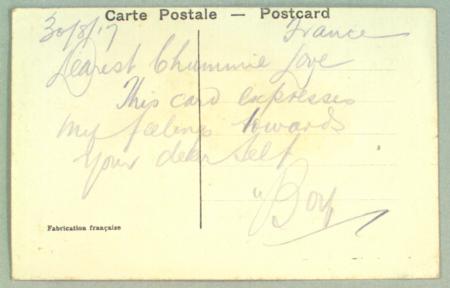 Carte Postale — Postcard
30/8/17 France
Dearest Chummie Love
This card expresses
my feelings towards
your dear self
"Boy"
Fabrication française